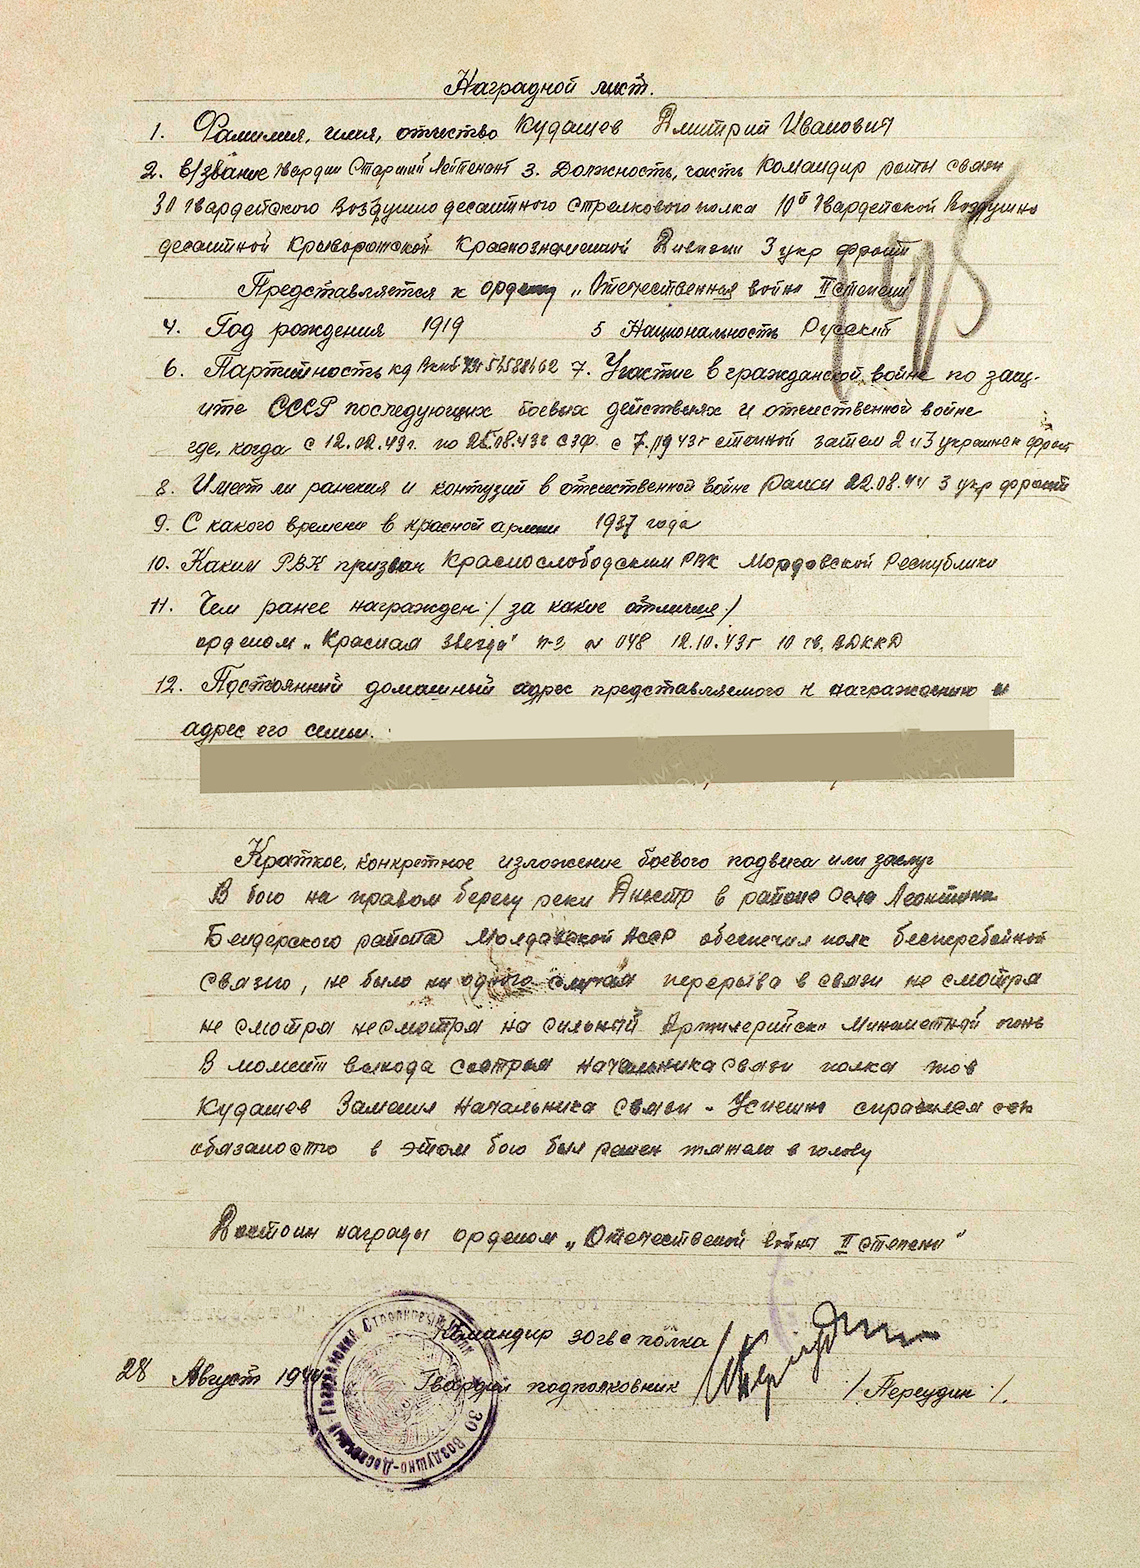 Наградной лист.
1. Фамилия, имя, отчество Кудашев Дмитрий Иванович
2. в/звание гвардии Старший Лейтенант 3. Должность, часть Командир роты связи
30 Гвардейского Воздушно десантного стрелкового полка 10й Гвардейской Воздушно
десантной Криворожской Краснознаменной Дивизии 3 укр фронт
Представляется к ордену „Отечественная война II степени"
4. Год рождения 1919 5 Национальность Русский
6. Партийность кд 7. Участие в гражданской войне по защ-
ите СССР последующих боевых действиях и отечественной войне
где, когда с 12.02.43г. по 25.08.43г СЗФ. с 7. степной затем 2 и 3 украинск фронт
8. Имеет ли ранения и контузий в отечественной войне Ранен 22.08.44 3 укр фронт
9. С какого времени в красной армии 1937 года
10. Каким РВК призван Краснослободским РВК Мордовской Республики
11. Чем ранее награжден / за какие отличия /
орденом „Красная Звезда" п-з N 048 12.10.43г 10 гв. ВДККД
12. Постоянный домашный адрес представляемого к награждению и
адрес его семьи.
Краткое, конкретное изложение боевого подвига или заслуг
В бою на правом берегу реки Днестр в районе Села Леонтина
Бендерского района Молдавской АССР обеспечил полк бесперебойной
связю, не было ни одного случая перерыва в связи не смотря
не смотря несмотря на сильный Артилерийско Минометной огонь
В момент выхода сострая Начальника связи полка тов
Кудашев Заменил Начальника Связи - Успешно справился сею
обязаностю в этом бою был ранен тяжело в голову
Достоин награды орденом „Отечественой войны II степени"
Командир 30 гв с полка
28 Август 1944 Гвардии подполковник / Переудин /.
30 Воздушно-Десантный Гвардейский Стрелковый Полк